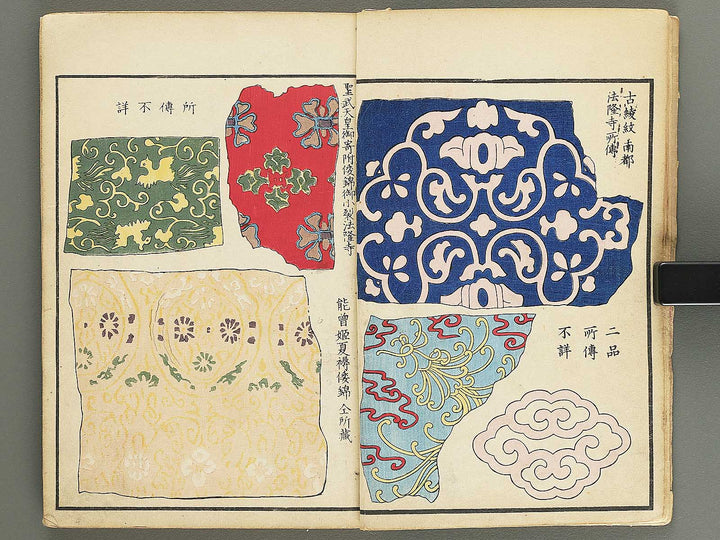 古綾紋 南都
法隆寺所傳
二品
所傳
不詳
聖武天皇御寄附倭錦御小裂法隆寺
能曾姫夏褥倭錦 仝所藏
所傳不詳